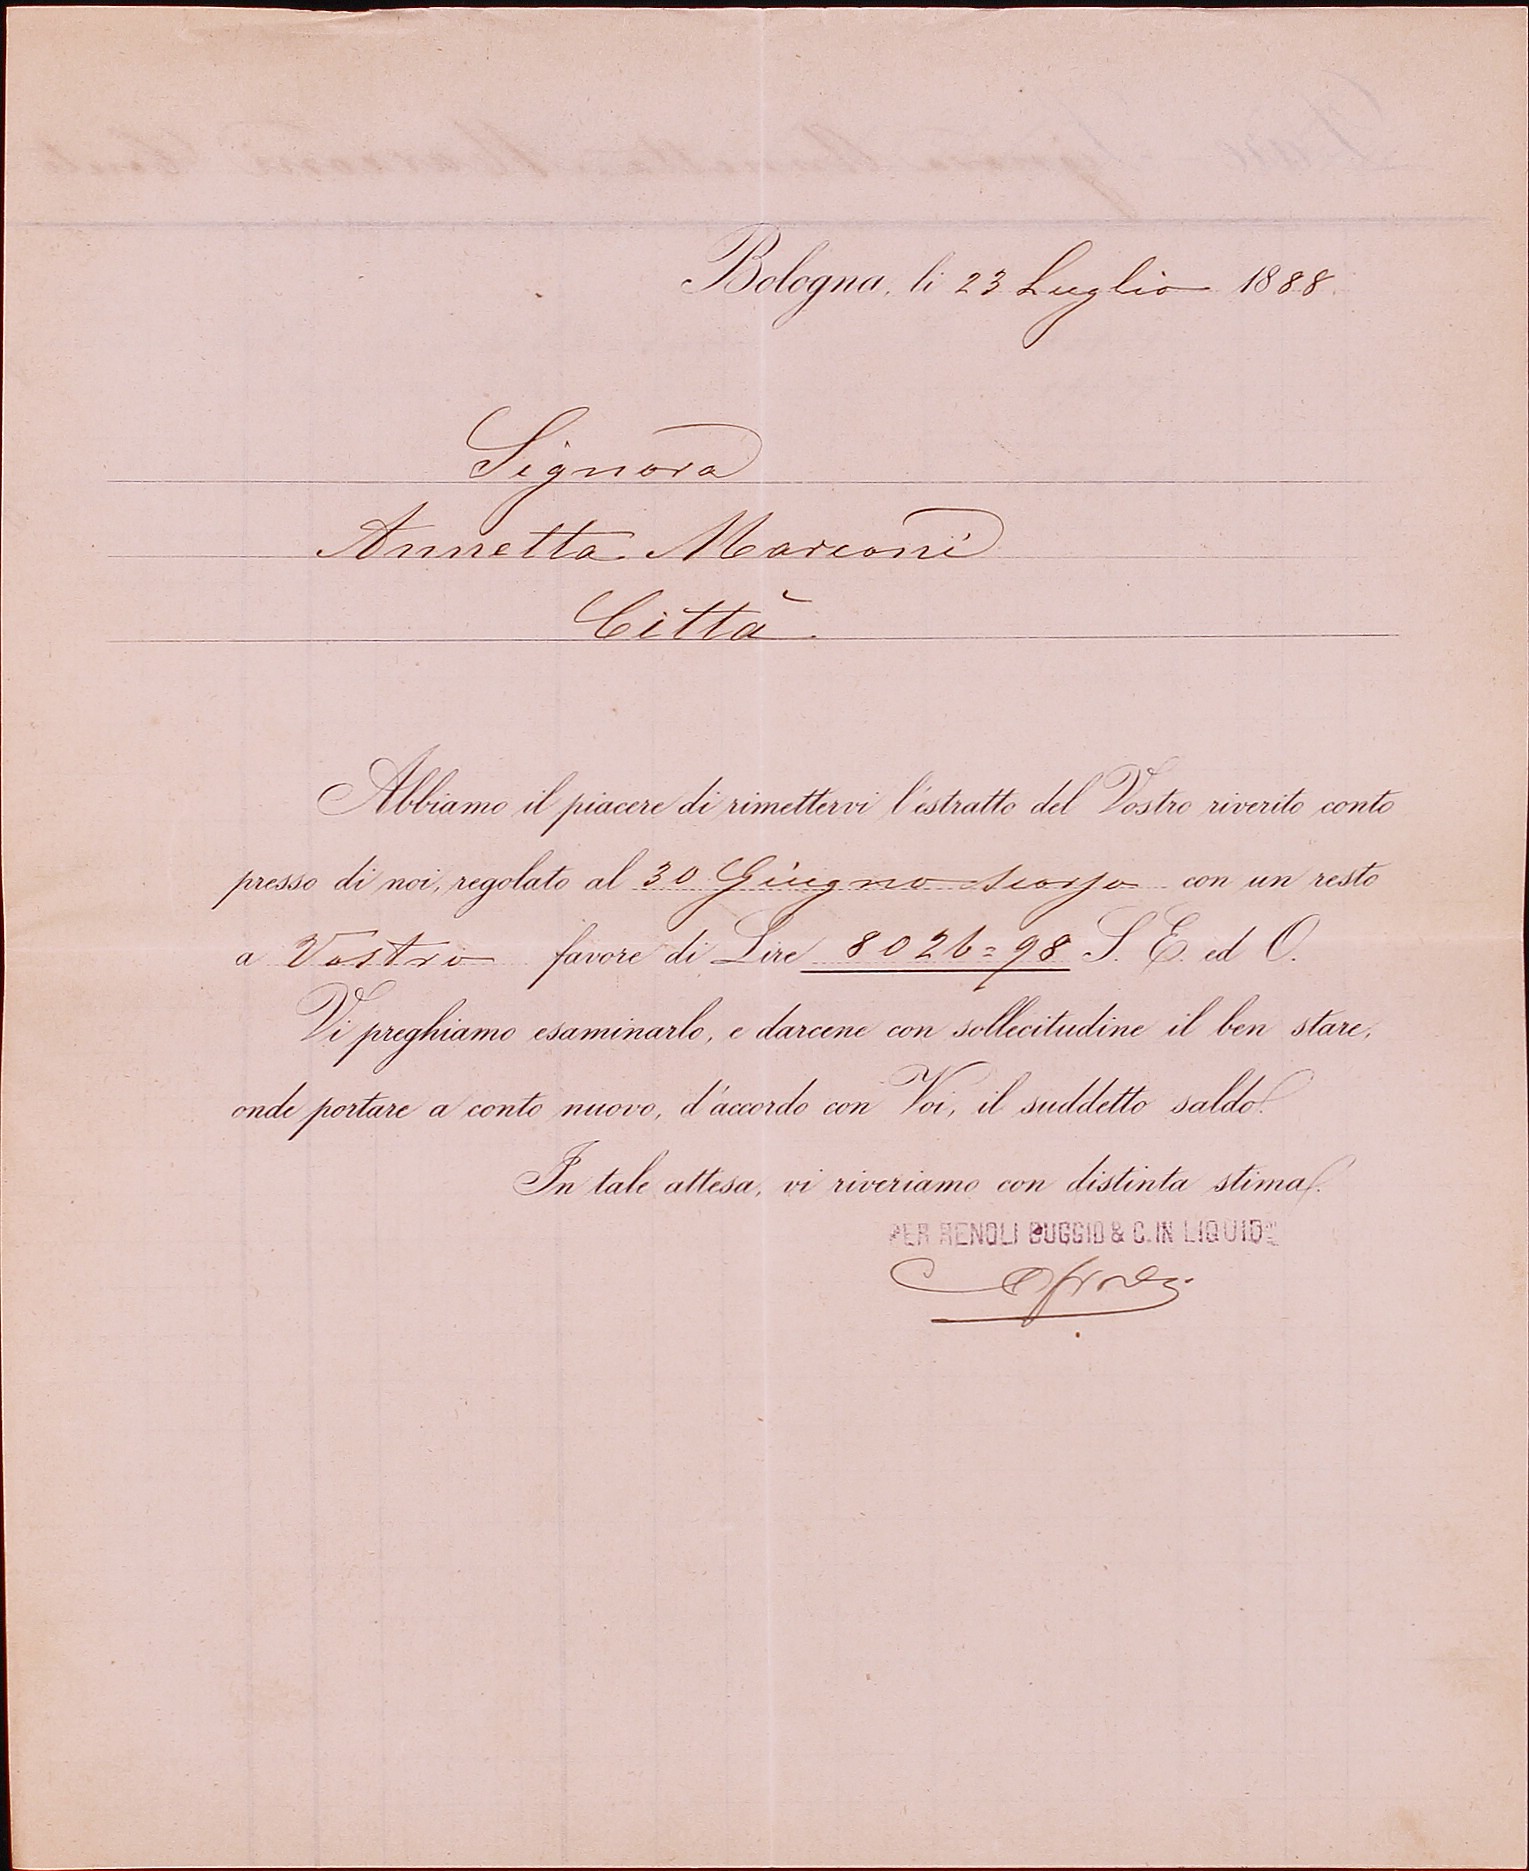 Bologna, li 23 Luglio 1888.
Signora
Annetta Marconi
Città
Abbiamo il piacere di rimettervi l'estratto del Vostro riverito conto
presso di noi, regolato al 30 Giugno scorso con un resto
a Vostro favore di Lire 8026=98 S. E. ed O.
Vi preghiamo esaminarlo, e darcene con sollecitudine il ben stare,
onde portare a conto nuovo, d'accordo con Voi, il suddetto saldo.
In tale attesa, vi riveriamo con distinta stima.
PER RENOLI BUGGIO & C. IN LIQUID